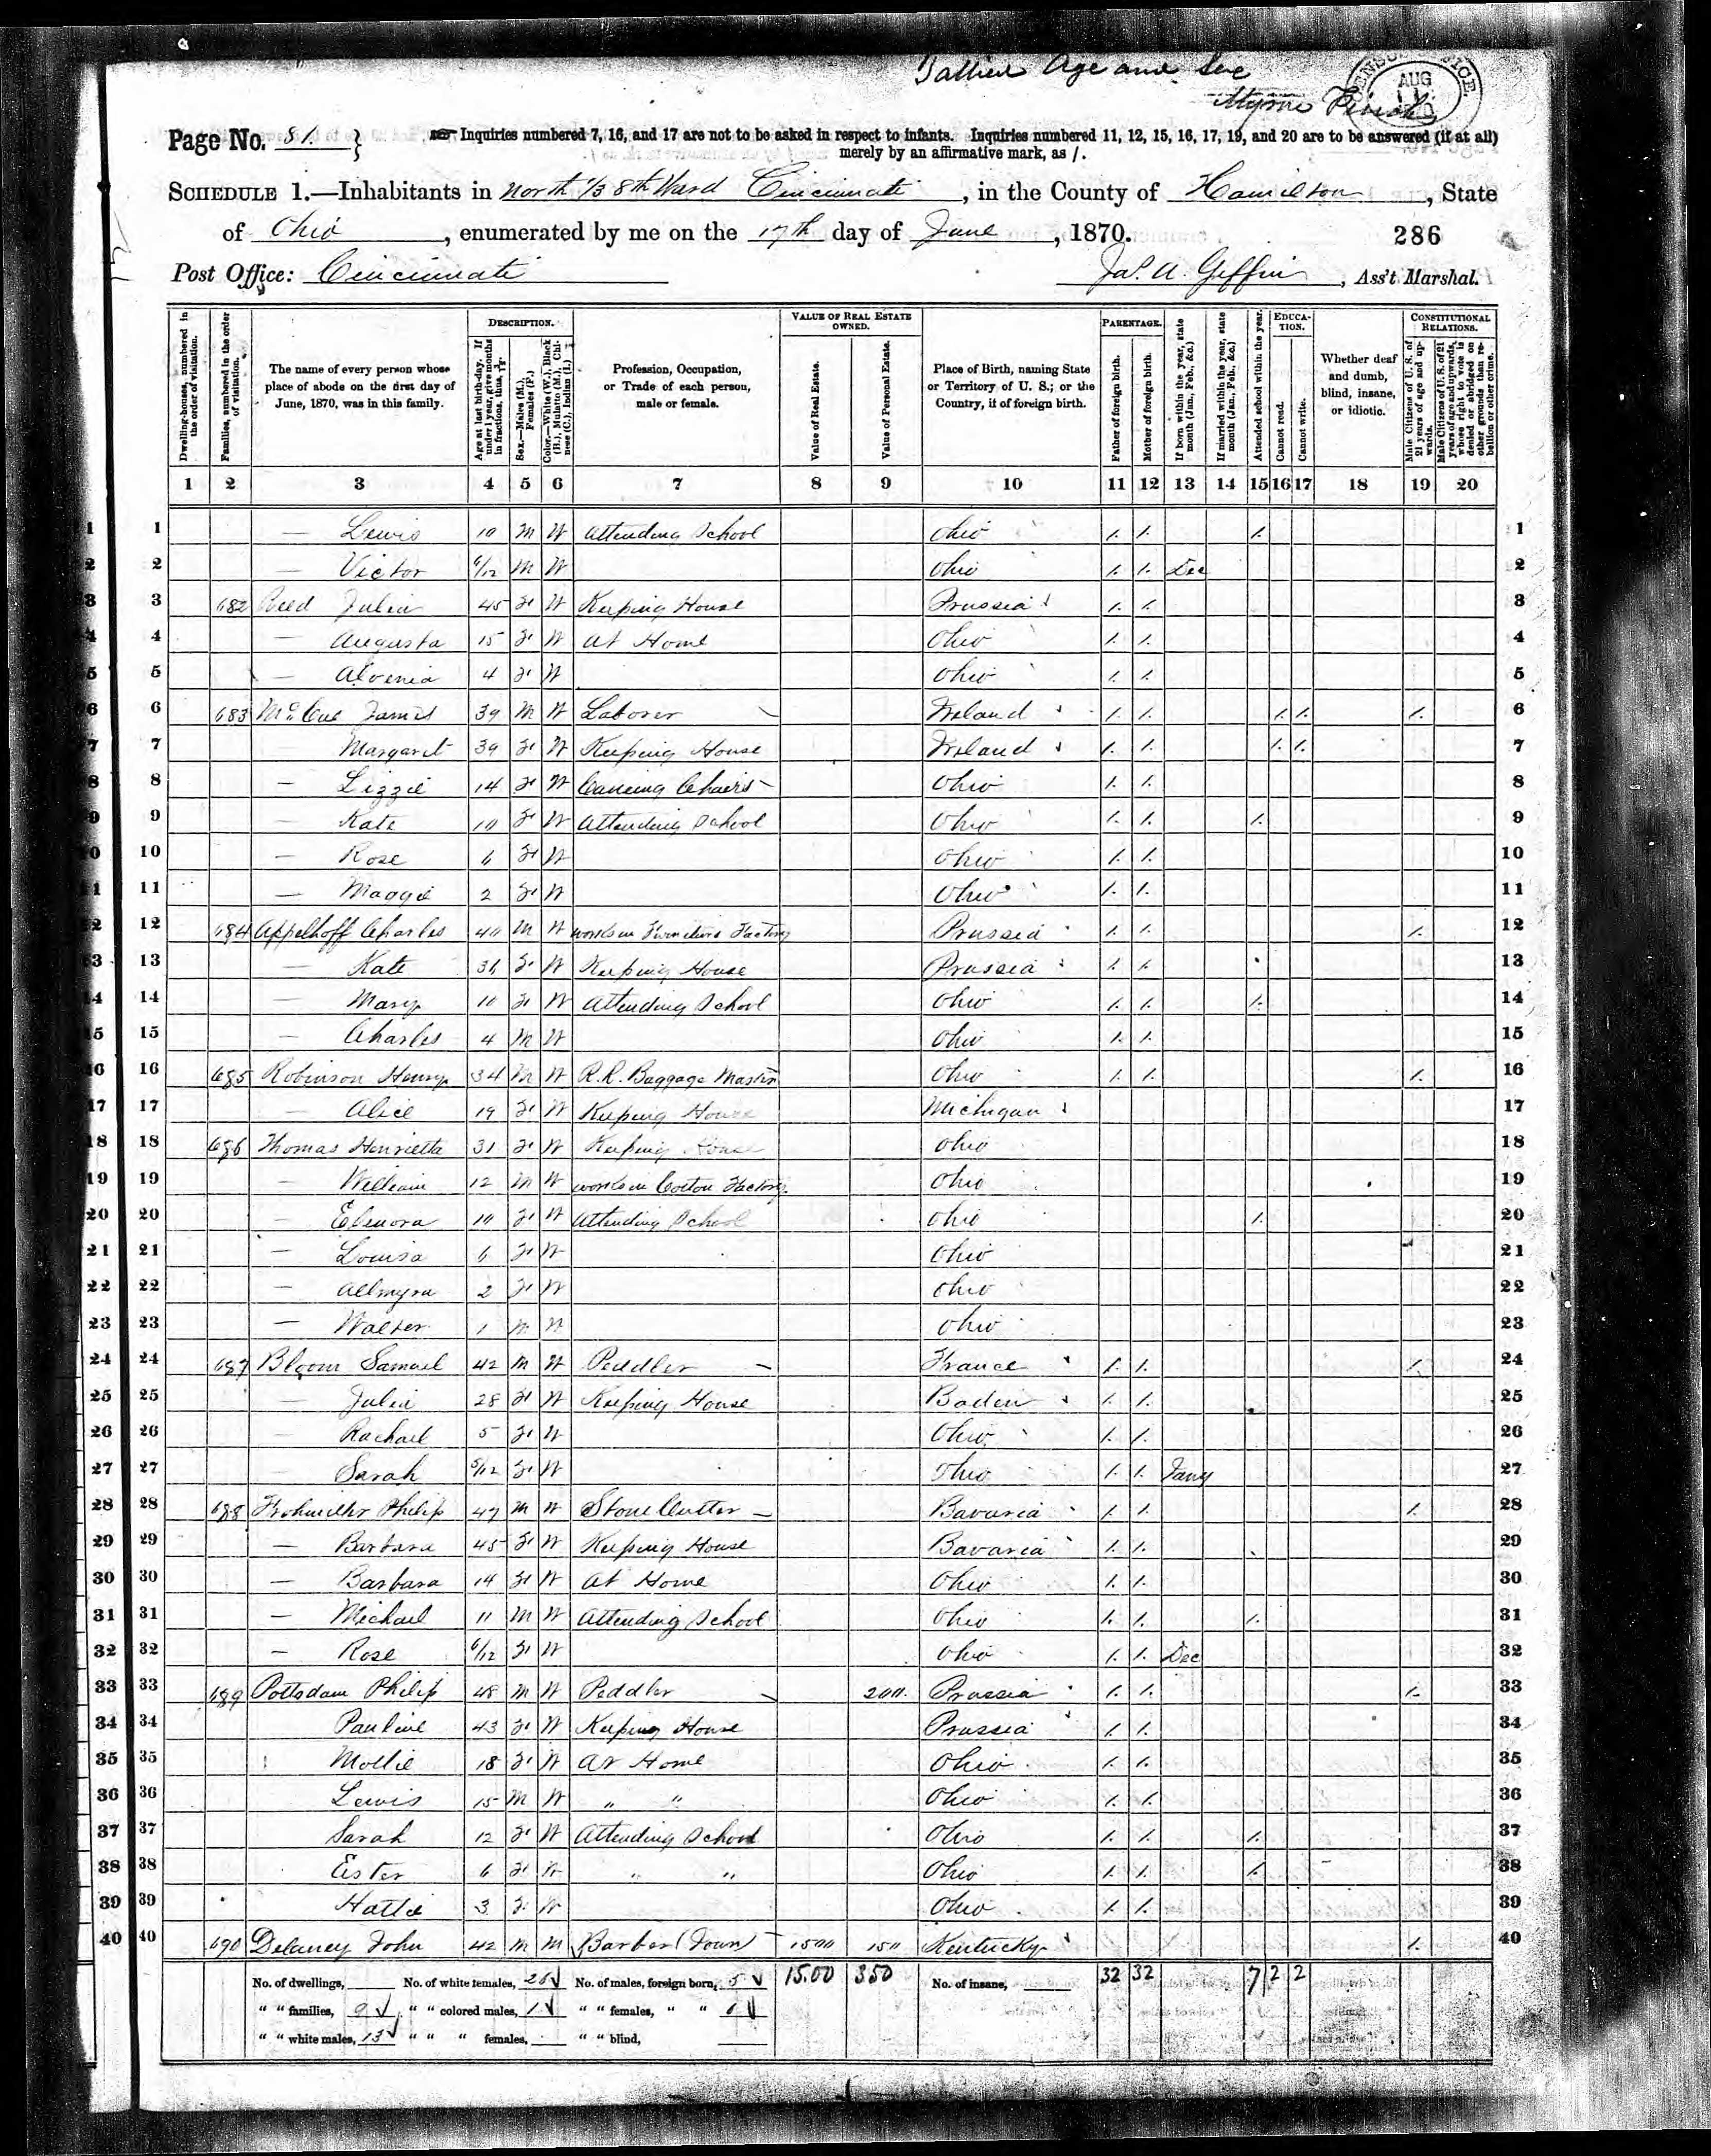 Tallied Age and Sex
CENSUS OFFICE.
AUG
Page No. 81.
Inquiries numbered 7, 16, and 17 are not to be asked in respect to infants. Inquiries numbered 11, 12, 15, 16, 17, 19, and 20 are to be answered (if at all)
merely by an affirmative mark, as /.
SCHEDULE 1.—Inhabitants in North 1/3 8th Ward Cincinnati, in the County of Hamilton, State
of Ohio, enumerated by me on the 17th day of June, 1870.
286
Post Office: Cincinnati
Jas. A. Giffin, Ass't Marshal.
Dwelling-houses, numbered in the order of visitation.
Families, numbered in the order of visitation.
The name of every person whose place of abode on the first day of June, 1870, was in this family.
DESCRIPTION.
Age at last birth-day. If under 1 year, give months in fractions, thus,
Sex.—Males (M.), Females (F.)
Color.—White (W.), Black (B.), Mulatto (M.), Chinese (C.), Indian (I.)
Profession, Occupation, or Trade of each person, male or female.
VALUE OF REAL ESTATE OWNED.
Value of Real Estate.
Value of Personal Estate.
Place of Birth, naming State or Territory of U. S.; or the Country, if of foreign birth.
PARENTAGE.
Father of foreign birth.
Mother of foreign birth.
If born within the year, state month (Jan., Feb., &c.)
If married within the year, state month (Jan., Feb., &c.)
Attended school within the year.
EDUCATION.
Cannot read.
Cannot write.
Whether deaf and dumb, blind, insane, or idiotic.
CONSTITUTIONAL RELATIONS.
Male Citizens of U. S. of 21 years of age and upwards.
Male Citizens of U. S. of 21 years of age and upwards, whose right to vote is denied or abridged on other grounds than rebellion or other crime.
1 2 3 4 5 6 7 8 9 10 11 12 13 14 15 16 17 18 19 20
1 1 — Lewis 10 M W Attending School Ohio /. /. /. 1
2 2 — Victor 6/12 M W Ohio /. /. Dec 2
3 3 682 Reed Julia 45 F W Keeping House Prussia /. /. 3
4 4 — Augusta 15 F W At Home Ohio /. /. 4
5 5 — Alvenia 4 F W Ohio /. /. 5
6 6 683 McCue James 39 M W Laborer Ireland /. /. /. /. /. 6
7 7 Margaret 39 F W Keeping House Ireland /. /. /. /. 7
8 8 — Lizzie 14 F W Caneing Chairs Ohio /. /. 8
9 9 — Kate 10 F W Attending School Ohio /. /. /. 9
10 10 — Rose 6 F W Ohio /. /. 10
11 11 — Maggie 2 F W Ohio /. /. 11
12 12 684 Appelhoff Charles 40 M W works in Furniture Factory Prussia /. /. /. 12
13 13 — Kate 36 F W Keeping House Prussia /. /. 13
14 14 — Mary 10 F W Attending School Ohio /. /. /. 14
15 15 — Charles 4 M W Ohio /. /. 15
16 16 685 Robinson Henry 34 M W R.R. Baggage Master Ohio /. /. /. 16
17 17 — Alice 19 F W Keeping House Michigan 17
18 18 686 Thomas Henrietta 31 F W Keeping House Ohio 18
19 19 — William 12 M W works in Cotton Factory. Ohio 19
20 20 — Elenora 10 F W Attending School Ohio /. 20
21 21 — Louisa 6 F W Ohio 21
22 22 — Allmyra 2 F W Ohio 22
23 23 — Walter 1 M W Ohio 23
24 24 687 Bloom Samuel 42 M W Peddler France /. /. /. 24
25 25 — Julia 28 F W Keeping House Baden /. /. 25
26 26 — Rachael 5 F W Ohio /. /. 26
27 27 — Sarah 5/12 F W Ohio /. /. Jany 27
28 28 688 Philip 47 M W Stone Cutter Bavaria /. /. /. 28
29 29 — Barbara 45 F W Keeping House Bavaria /. /. 29
30 30 — Barbara 14 F W At Home Ohio /. /. 30
31 31 — Michael 11 M W Attending School Ohio /. /. /. 31
32 32 — Rose 6/12 F W Ohio /. /. Dec 32
33 33 689 Pottsdam Philip 48 M W Peddler 200. Prussia /. /. /. 33
34 34 Pauline 43 F W Keeping House Prussia /. /. 34
35 35 Mollie 18 F W At Home Ohio /. /. 35
36 36 Lewis 15 M W " " Ohio /. /. 36
37 37 Sarah 12 F W Attending School Ohio /. /. /. 37
38 38 Ester 6 F W " " Ohio /. /. /. 38
39 39 Hattie 3 F W Ohio /. /. 39
40 40 690 Delaney John 42 M M Barber (Town) 1500 150 Kentucky /. 40
No. of dwellings, No. of white females, 26 No. of males, foreign born, 5 1500 350 No. of insane, 32 32 7 2 2
" " families, 9 " " colored males, 1 " " females, " " 6
" " white males, 13 " " " females, " " blind,